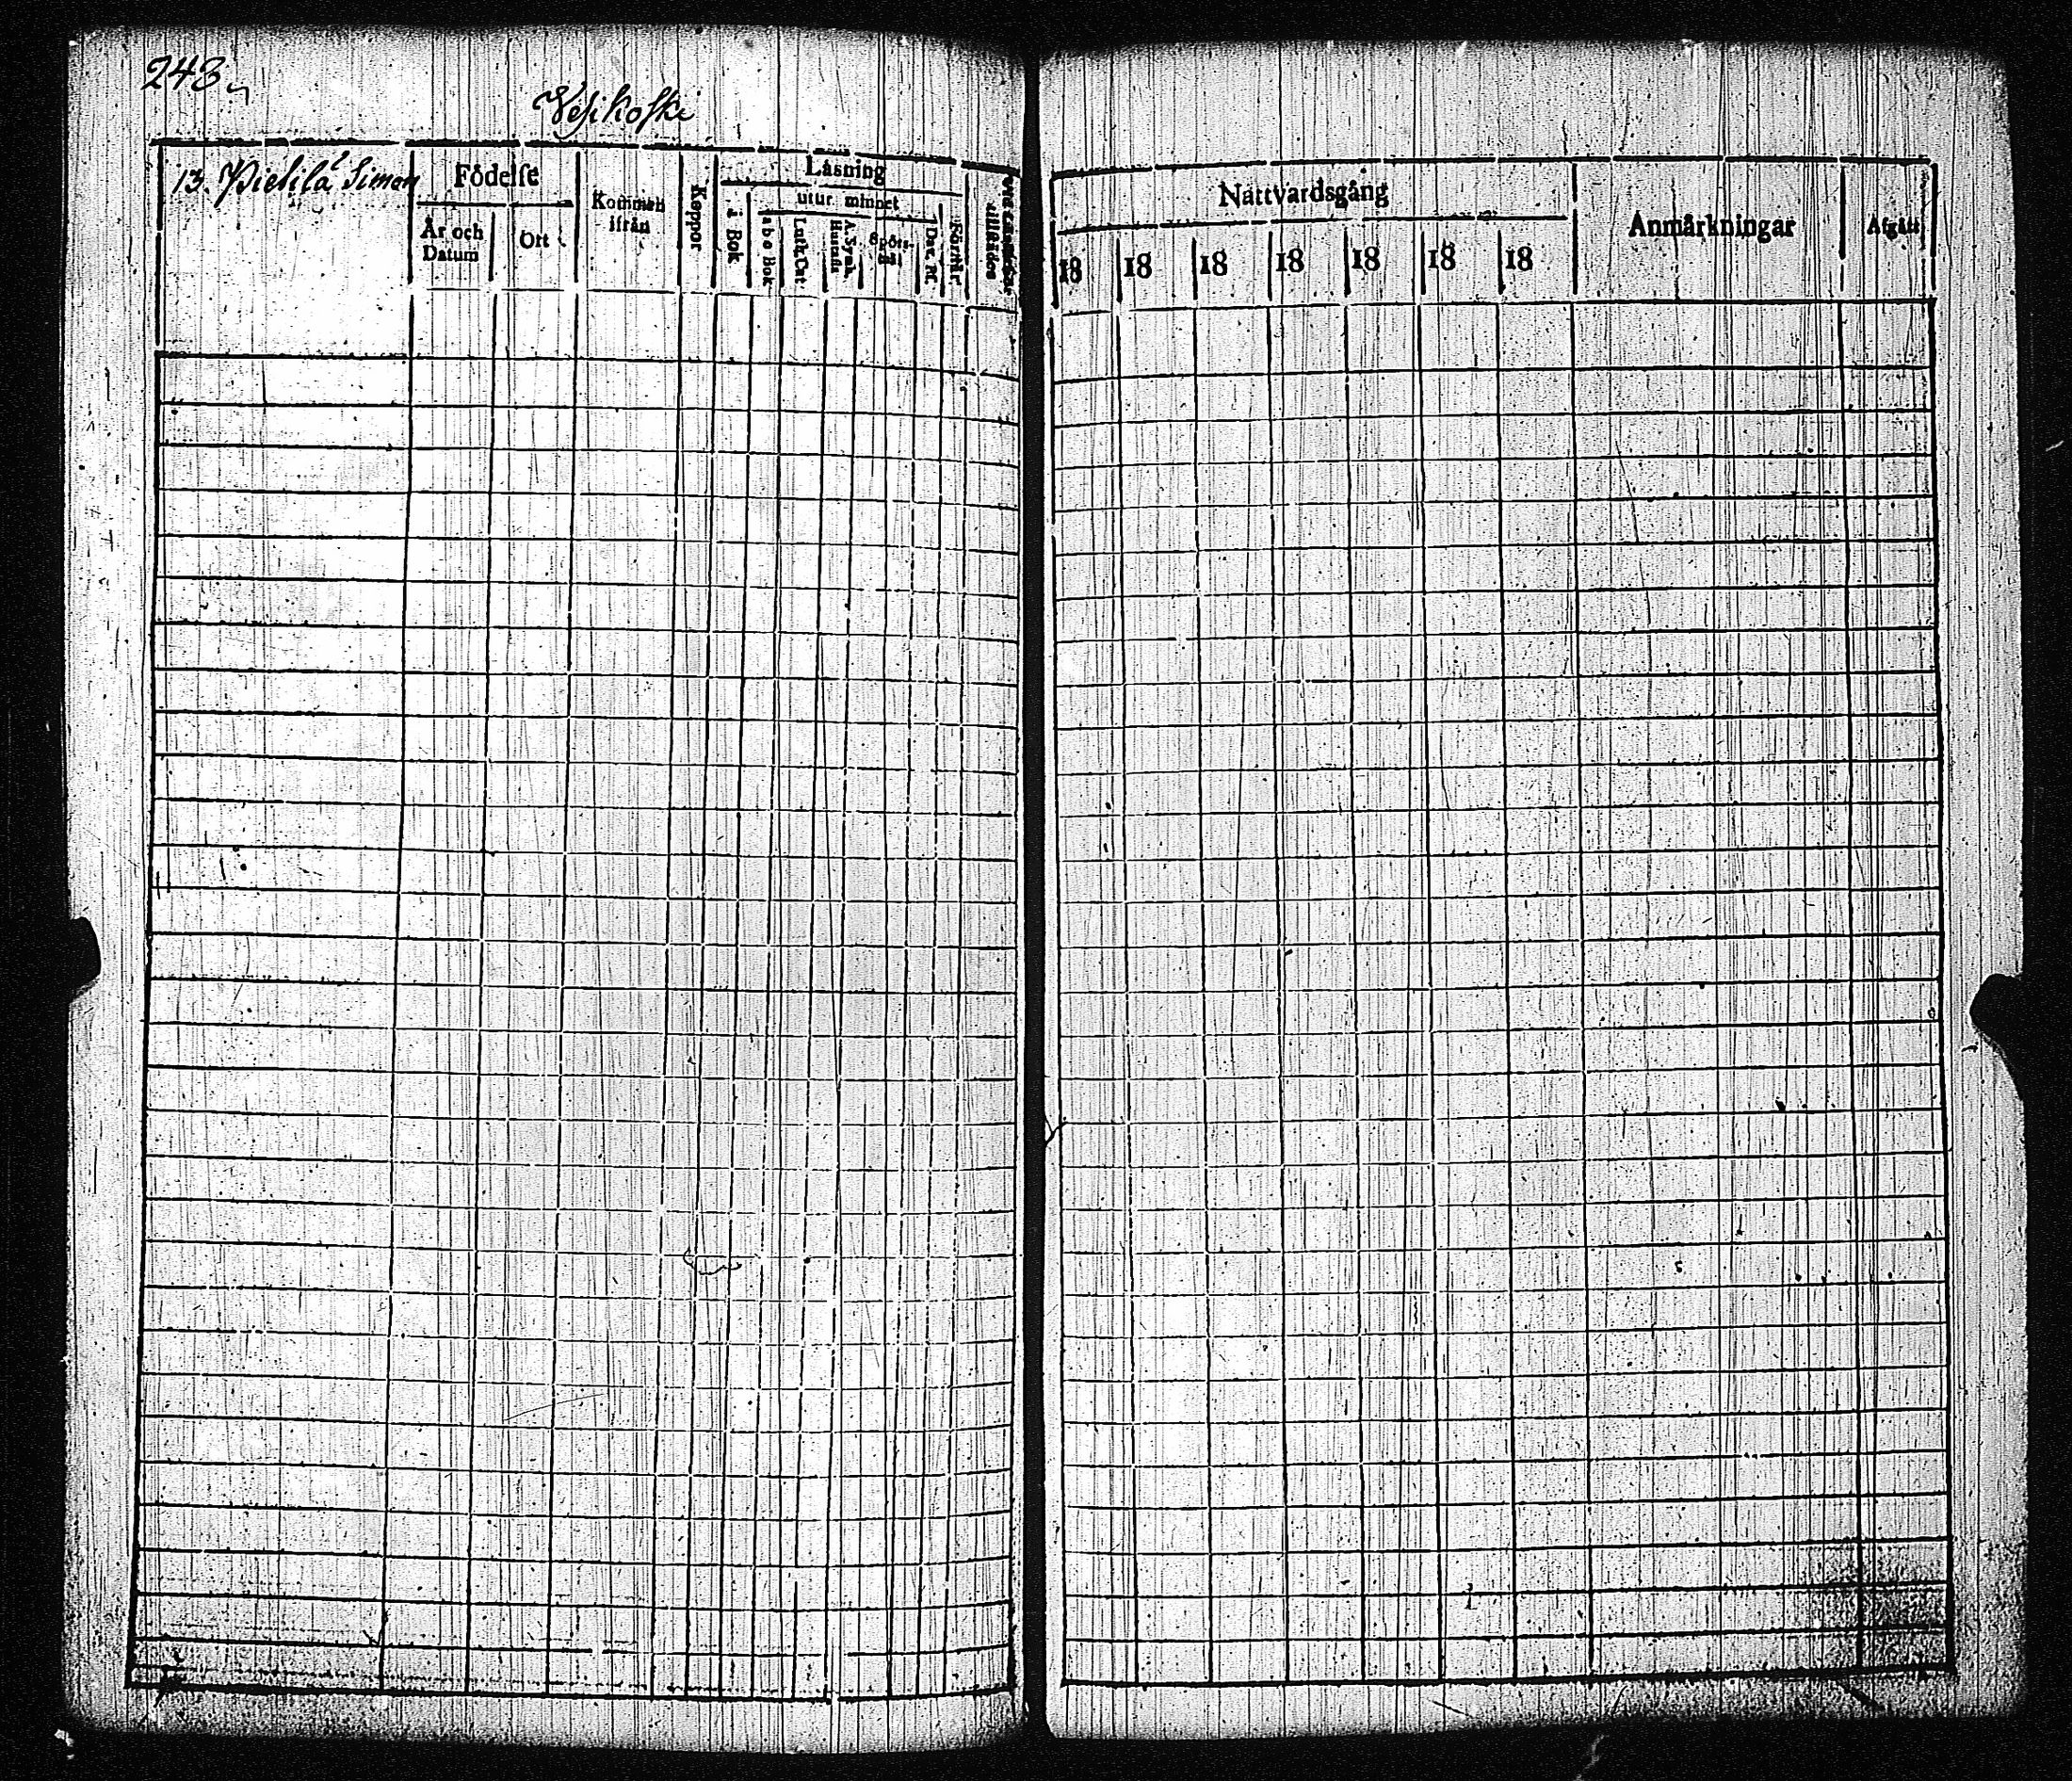 243
Vesikoski
13. Pietilä Simon
Födelse
År och Datum
Ort
Kommen ifrån
Koppor
Läsning
i Bok
utur minnet
a b c Bok
Luth. Cat.
A. Symb. Hustafla
Spörs-mål
Dav. Ps.
Förstår
Nattvardsgång
18 18 18 18 18 18 18
Anmärkningar
Afgått